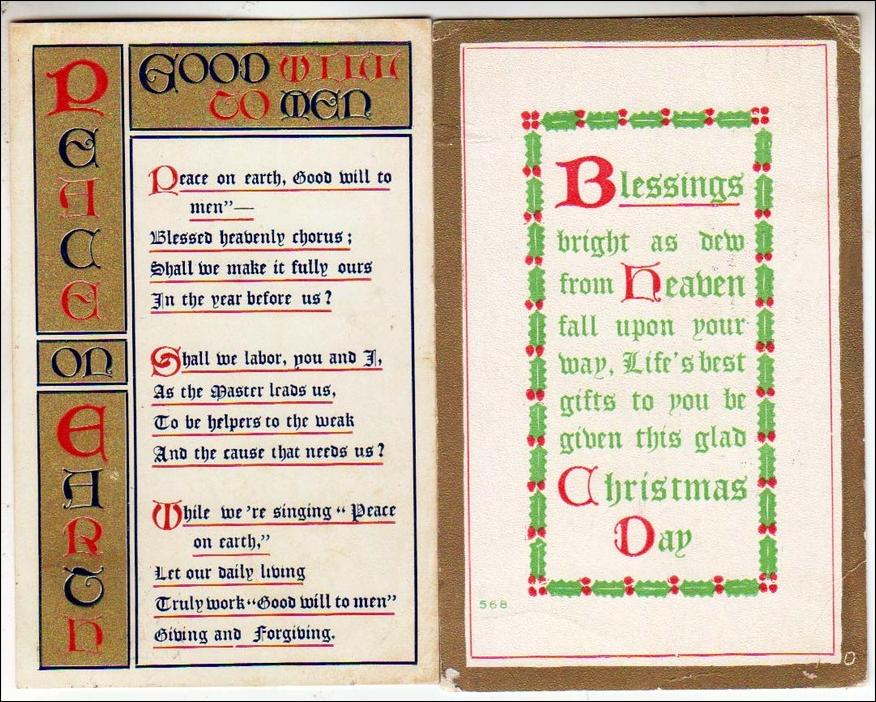 PEACE
ON
EARTH
GOOD WILL
TO MEN
Peace on earth, Good will to
men"—
Blessed heavenly chorus;
Shall we make it fully ours
In the year before us?
Shall we labor, you and I,
As the Master leads us,
To be helpers to the weak
And the cause that needs us?
While we're singing "Peace
on earth,"
Let our daily living
Truly work "Good will to men"
Giving and Forgiving.
Blessings
bright as dew
from Heaven
fall upon your
way, Life's best
gifts to you be
given this glad
Christmas
Day
568